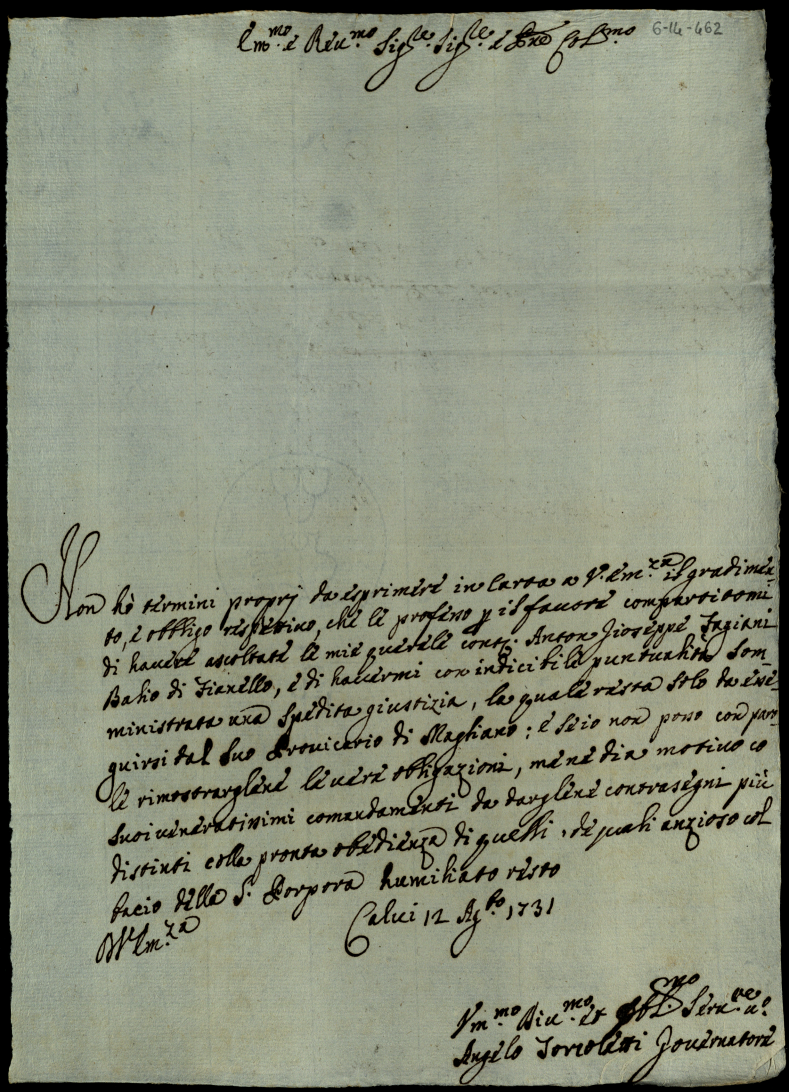 Em.mo e Reu.mo Sig.re Sig.re e Pne Col.mo
6-14-462
Non hò termini proprj da esprimere in carta a V. Em.za il gradimen-
to, e obbligo respettivo, che le professo p il favore compartitomi
di havere ascoltate le mie querele contº. Anton Gioseppe Fagiani
Balio di Fianello, e di havermi con indicibile puntualità som-
ministrata una spedita giustizia, la quale resta solo da ese-
guirsi dal suo Provicario di Magliano; e se io non posso con paro-
le rimostrargliene le vere obbligazioni, me ne dia motivo co
suoi veneratissimi comandamenti da dargliene contrasegni più
distinti colla pronta obedienza di quelli, de quali anzioso col
bacio della S. Porpora humiliato resto
Di V. Em.za
Calvi 12 Ag.sto 1731
Vm.mo Diu.mo et Obl.mo Seru.re u.o
Angelo Governatore